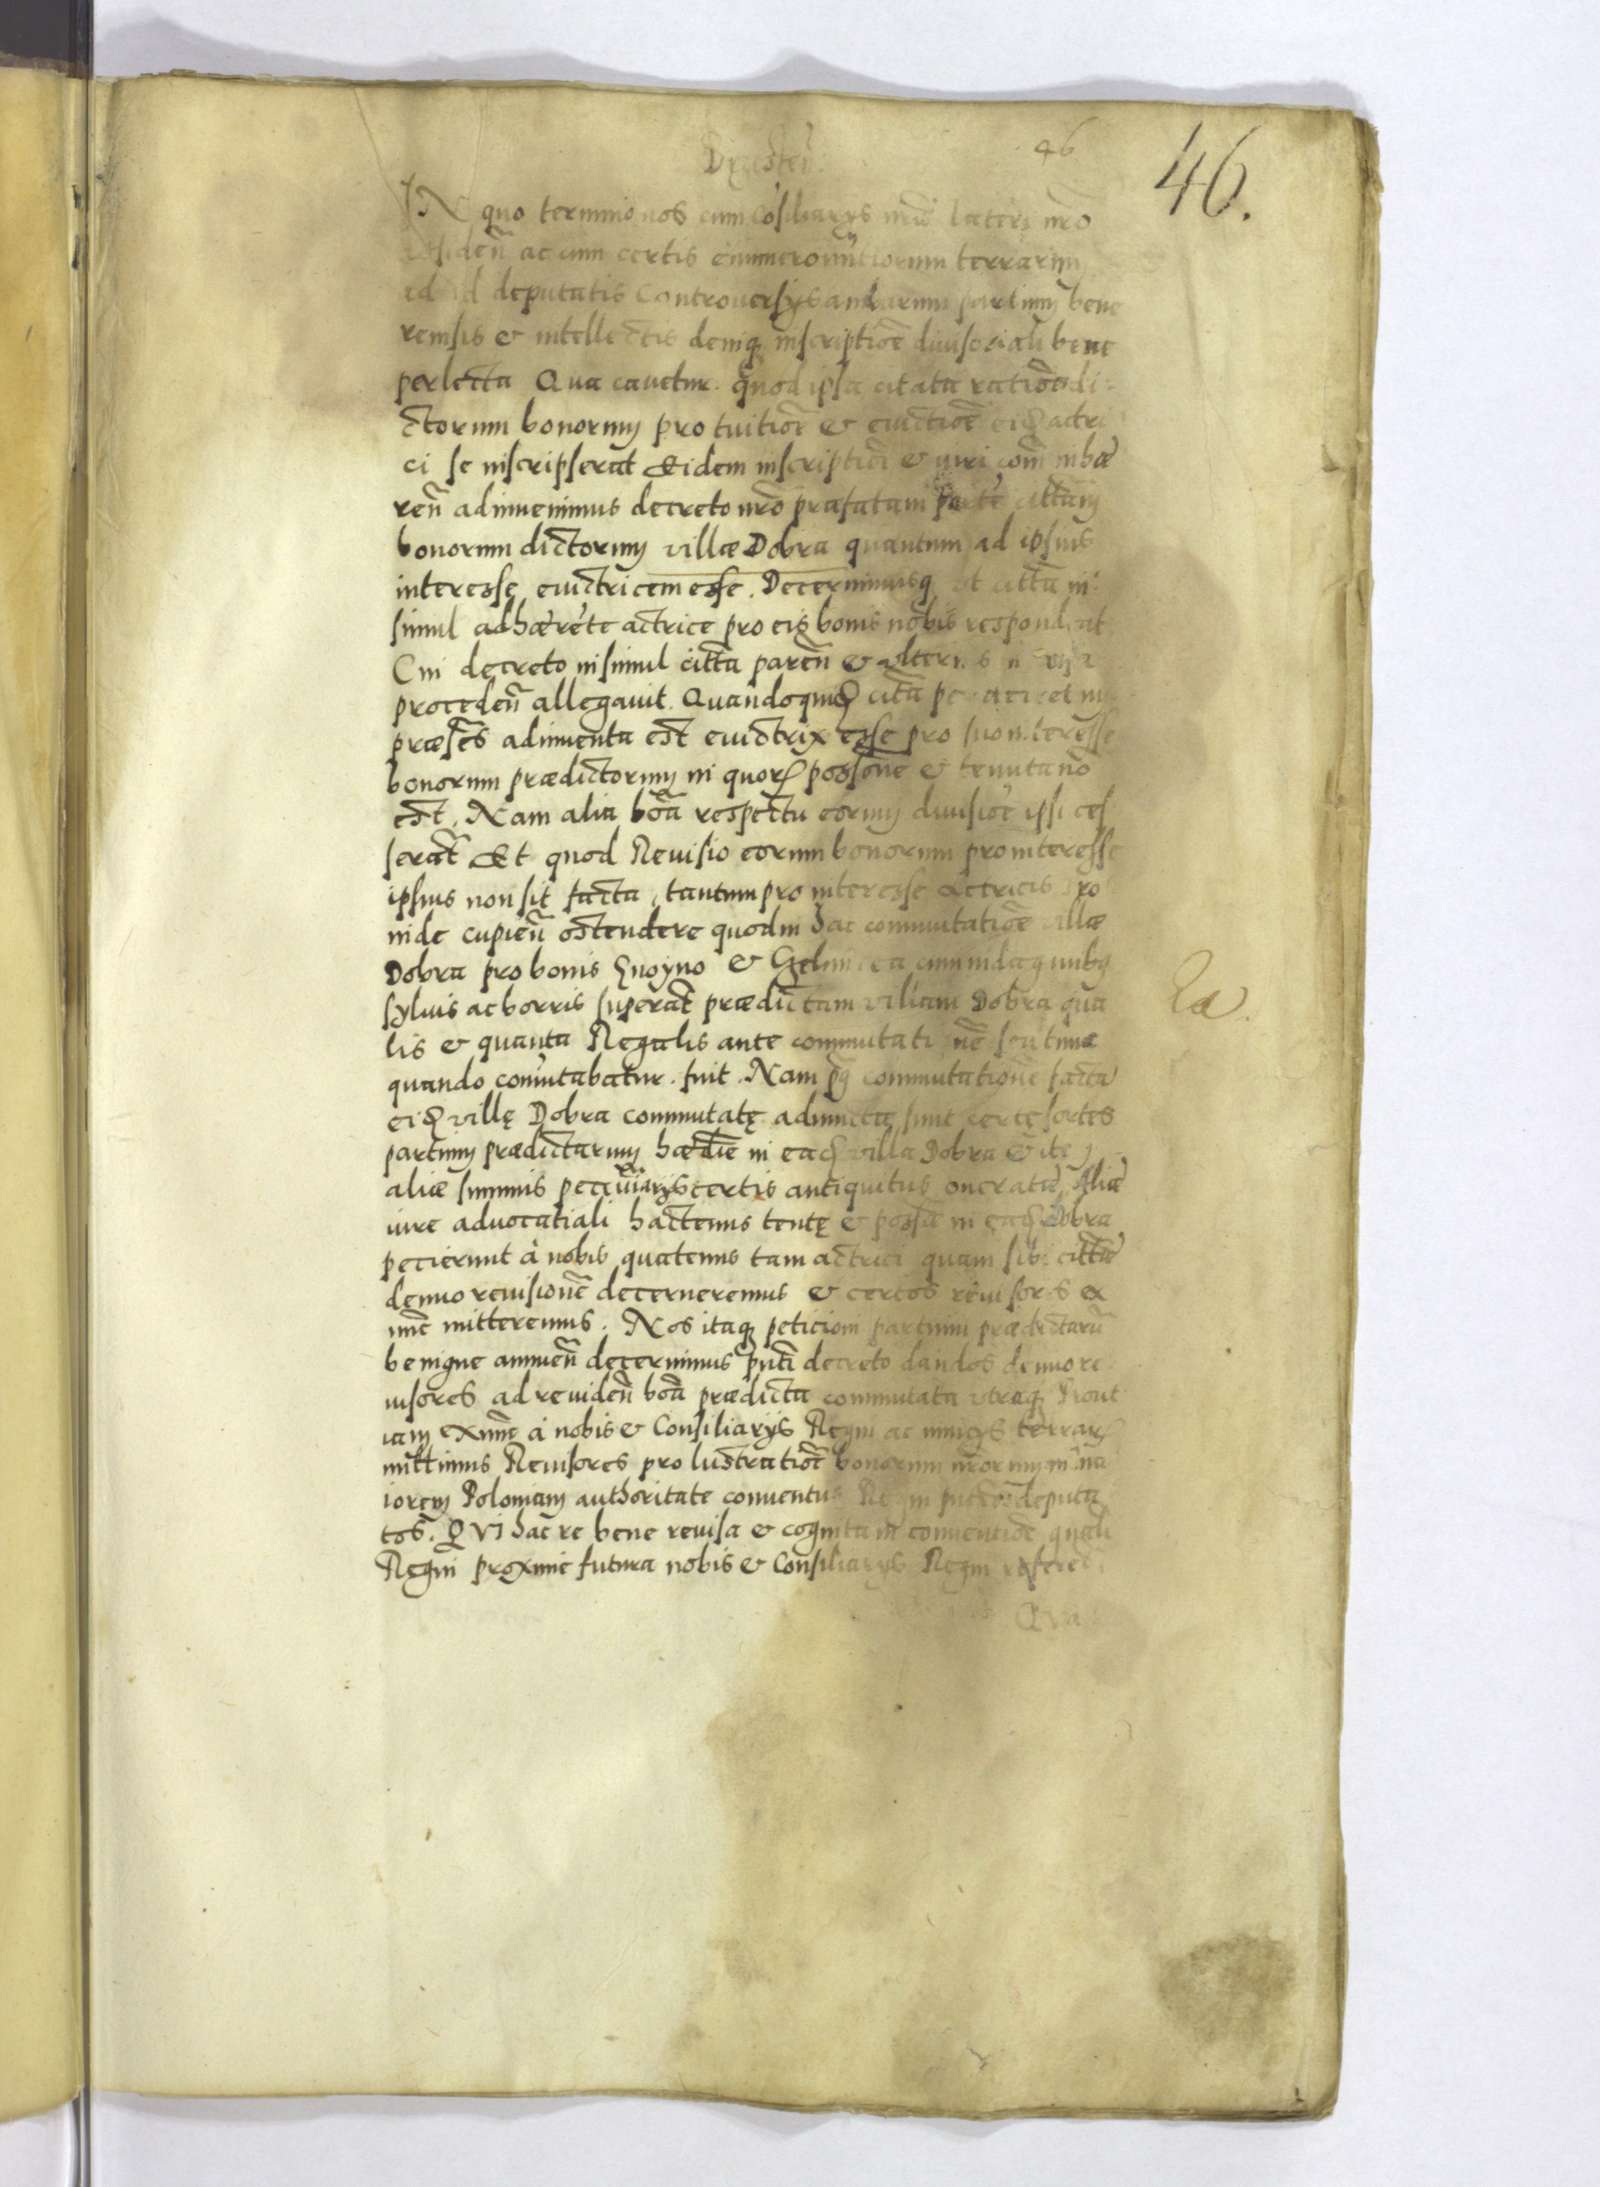 46
46.
IN quo termino nos cum Cosiliarys nris lateri nro
ac cum certis e numero nuntiorum terrarum
ad id deputatis Controversys ambarum partium bene
remsis & intellectis demq inscriptioe divisoriali bene
perlecta Qua cavetur. quod ipsa citata ratioe di
ctorum bonorum pro tuitioe & evictioe eid actri
ci se inscripserat Et idem inscriptioi & iuri com inhæ
ren adinvenimus decreto nro præfatam parte cittam
bonorum dictorum villæ Dobra quantum ad ipsius
interesse evictricem esse. Decernimusq ut citta in
simul adhærete actrice pro eis bonis nobis respondeat
Cui decreto insimul citta paren & ulterius
proceden allegavit. Quandoquid citta
præses adinventa est evictrix esse pro suo interesse
bonorum prædictorum in quor possone & tenuta no
est. Nam alia boa respectu eorum divisioe ipsi ces
serat Et quod Revisio eorum bonorum pro interesse
ipsius non sit facta, tantum pro interesse actricis pro
inde cupien ostendere quod in hac commutatioe villæ
Dobra pro bonis Gnoyno & cum indaginibq
sylvis ac borris superat prædictam villam Dobra qua
lis & quanta Regalis ante commutationē seu tunc
quando comutabatur. fuit. Nam pq commutatione facta
eid villę Dobra commutatę adiunctę sunt certę sortes
partium prædictarum hædie in ead villa Dobra & ite
aliæ summis pecuniarys certis antiquitus oneratæ Aliæ
iure advocatiali hactenus tentę & possæ in ead Dobra
pecierunt à nobis quatenus tam actrici quam sibi cittæ
denuo revisione decerneremus & certos revisores ex
nuc mitteremus. Nos itaq peticiom partium prædictaru
benigne annuen decernimus pnti decreto dandos denuo re
visores ad reviden boa prædicta commutata utraq Prout
iam exnuc à nobis & Consiliarys Regni ac nuncys terrar
mittimus Revisores pro lustratioe bonorum nrorum in ma
iorem Poloniam authoritate conventus Regni pntis deputa
tos. QVI hac re bene revisa & cognita in conventioe gnali
Regni proxime futura nobis & Consiliarys Regni referet
La.
Qua